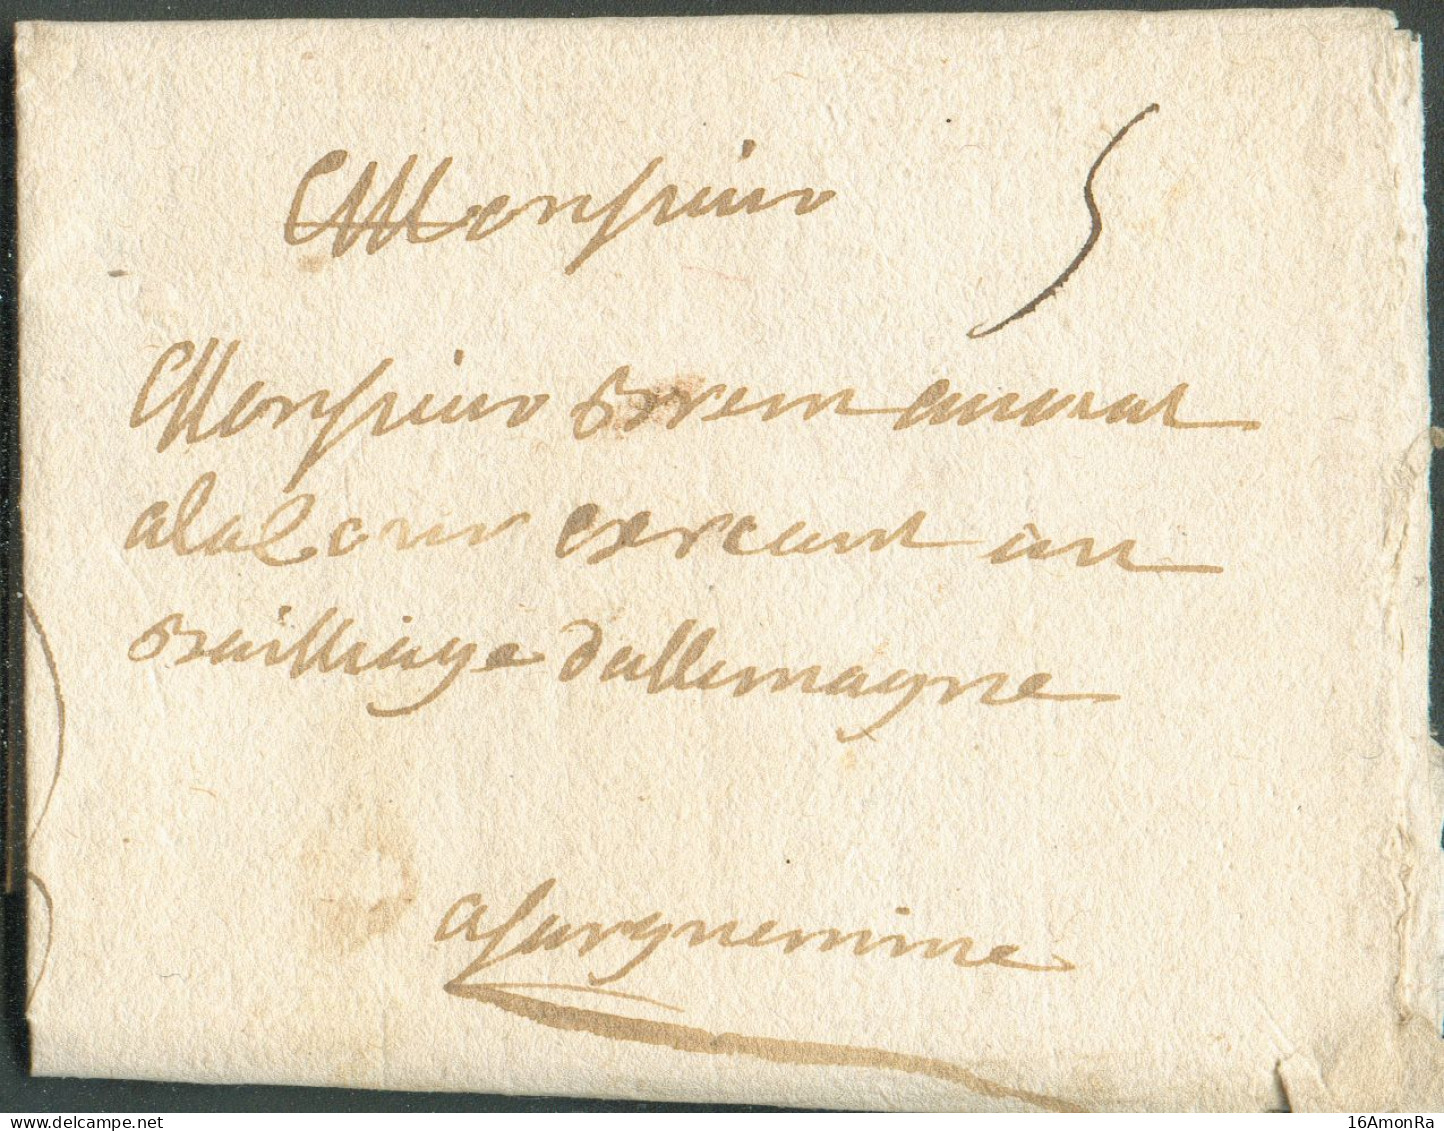 Monsieur 5
Monsieur Brem avocat
a la Cour exercant au
Bailliage dallemagne
a Sarguemine
16AmonRa